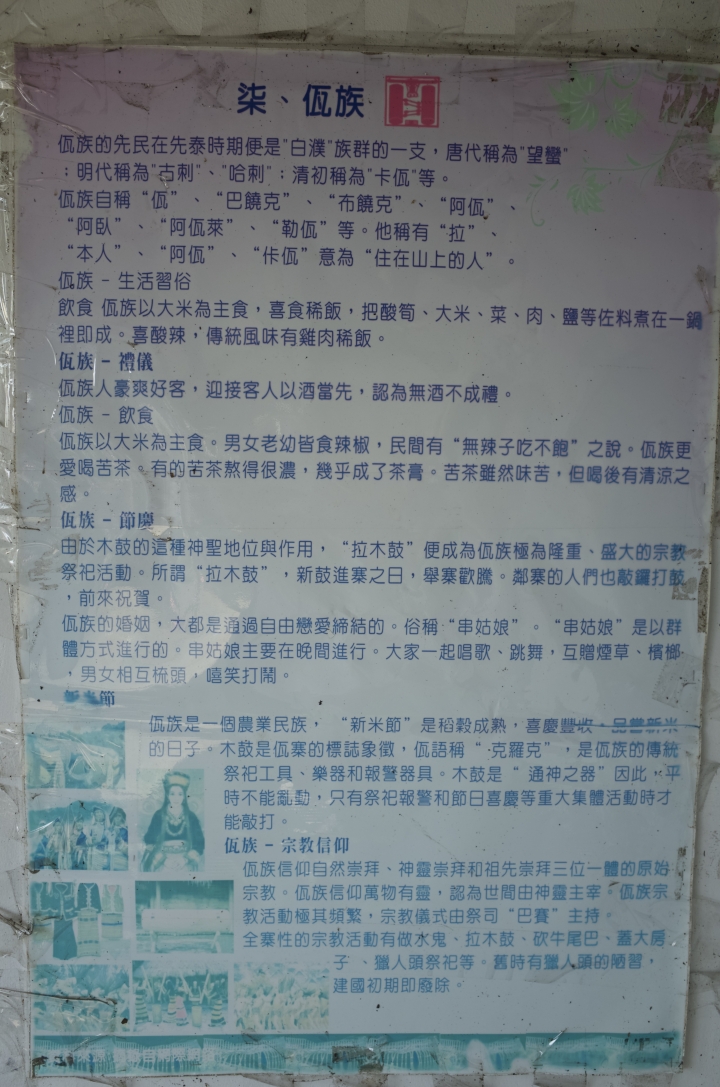 柒、佤族
佤族的先民在先泰時期便是"白濮"族群的一支，唐代稱為"望蠻"
；明代稱為"古刺"、"哈刺"；清初稱為"卡佤"等。
佤族自稱“佤”、“巴饒克”、“布饒克”、“阿佤”、
“阿臥”、“阿佤萊”、“勒佤”等。他稱有“拉”、
“本人”、“阿佤”、“佧佤”意為“住在山上的人”。
佤族－生活習俗
飲食 佤族以大米為主食，喜食稀飯，把酸筍、大米、菜、肉、鹽等佐料煮在一鍋
裡即成。喜酸辣，傳統風味有雞肉稀飯。
佤族－禮儀
佤族人豪爽好客，迎接客人以酒當先，認為無酒不成禮。
佤族－飲食
佤族以大米為主食。男女老幼皆食辣椒，民間有“無辣子吃不飽”之說。佤族更
愛喝苦茶。有的苦茶熬得很濃，幾乎成了茶膏。苦茶雖然味苦，但喝後有清涼之
感。
佤族－節慶
由於木鼓的這種神聖地位與作用，“拉木鼓”便成為佤族極為隆重、盛大的宗教
祭祀活動。所謂“拉木鼓”，新鼓進寨之日，舉寨歡騰。鄰寨的人們也敲鑼打鼓
，前來祝賀。
佤族的婚姻，大都是通過自由戀愛締結的。俗稱“串姑娘”。“串姑娘”是以群
體方式進行的。串姑娘主要在晚間進行。大家一起唱歌、跳舞，互贈煙草、檳榔
，男女相互梳頭，嘻笑打鬧。
新米節
佤族是一個農業民族，“新米節”是稻穀成熟，喜慶豐收，品嘗新米
的日子。木鼓是佤寨的標誌象徵，佤語稱“克羅克”，是佤族的傳統
祭祀工具、樂器和報警器具。木鼓是“通神之器”因此，平
時不能亂動，只有祭祀報警和節日喜慶等重大集體活動時才
能敲打。
佤族－宗教信仰
佤族信仰自然崇拜、神靈崇拜和祖先崇拜三位一體的原始
宗教。佤族信仰萬物有靈，認為世間由神靈主宰。佤族宗
教活動極其頻繁，宗教儀式由祭司“巴賽”主持。
全寨性的宗教活動有做水鬼、拉木鼓、砍牛尾巴、蓋大房
子、獵人頭祭祀等。舊時有獵人頭的陋習，
建國初期即廢除。